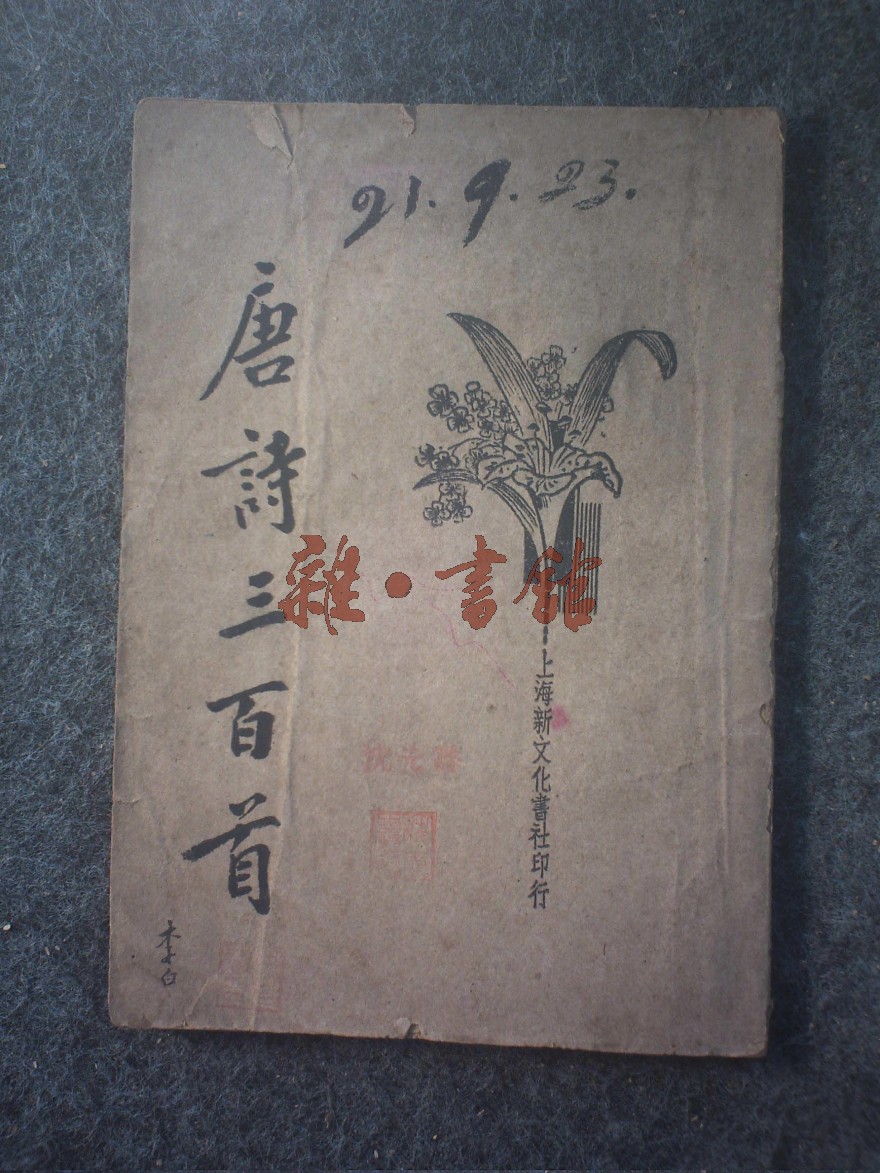 21.9.23.
唐詩三百首
雜·書館
上海新文化書社印行
李白